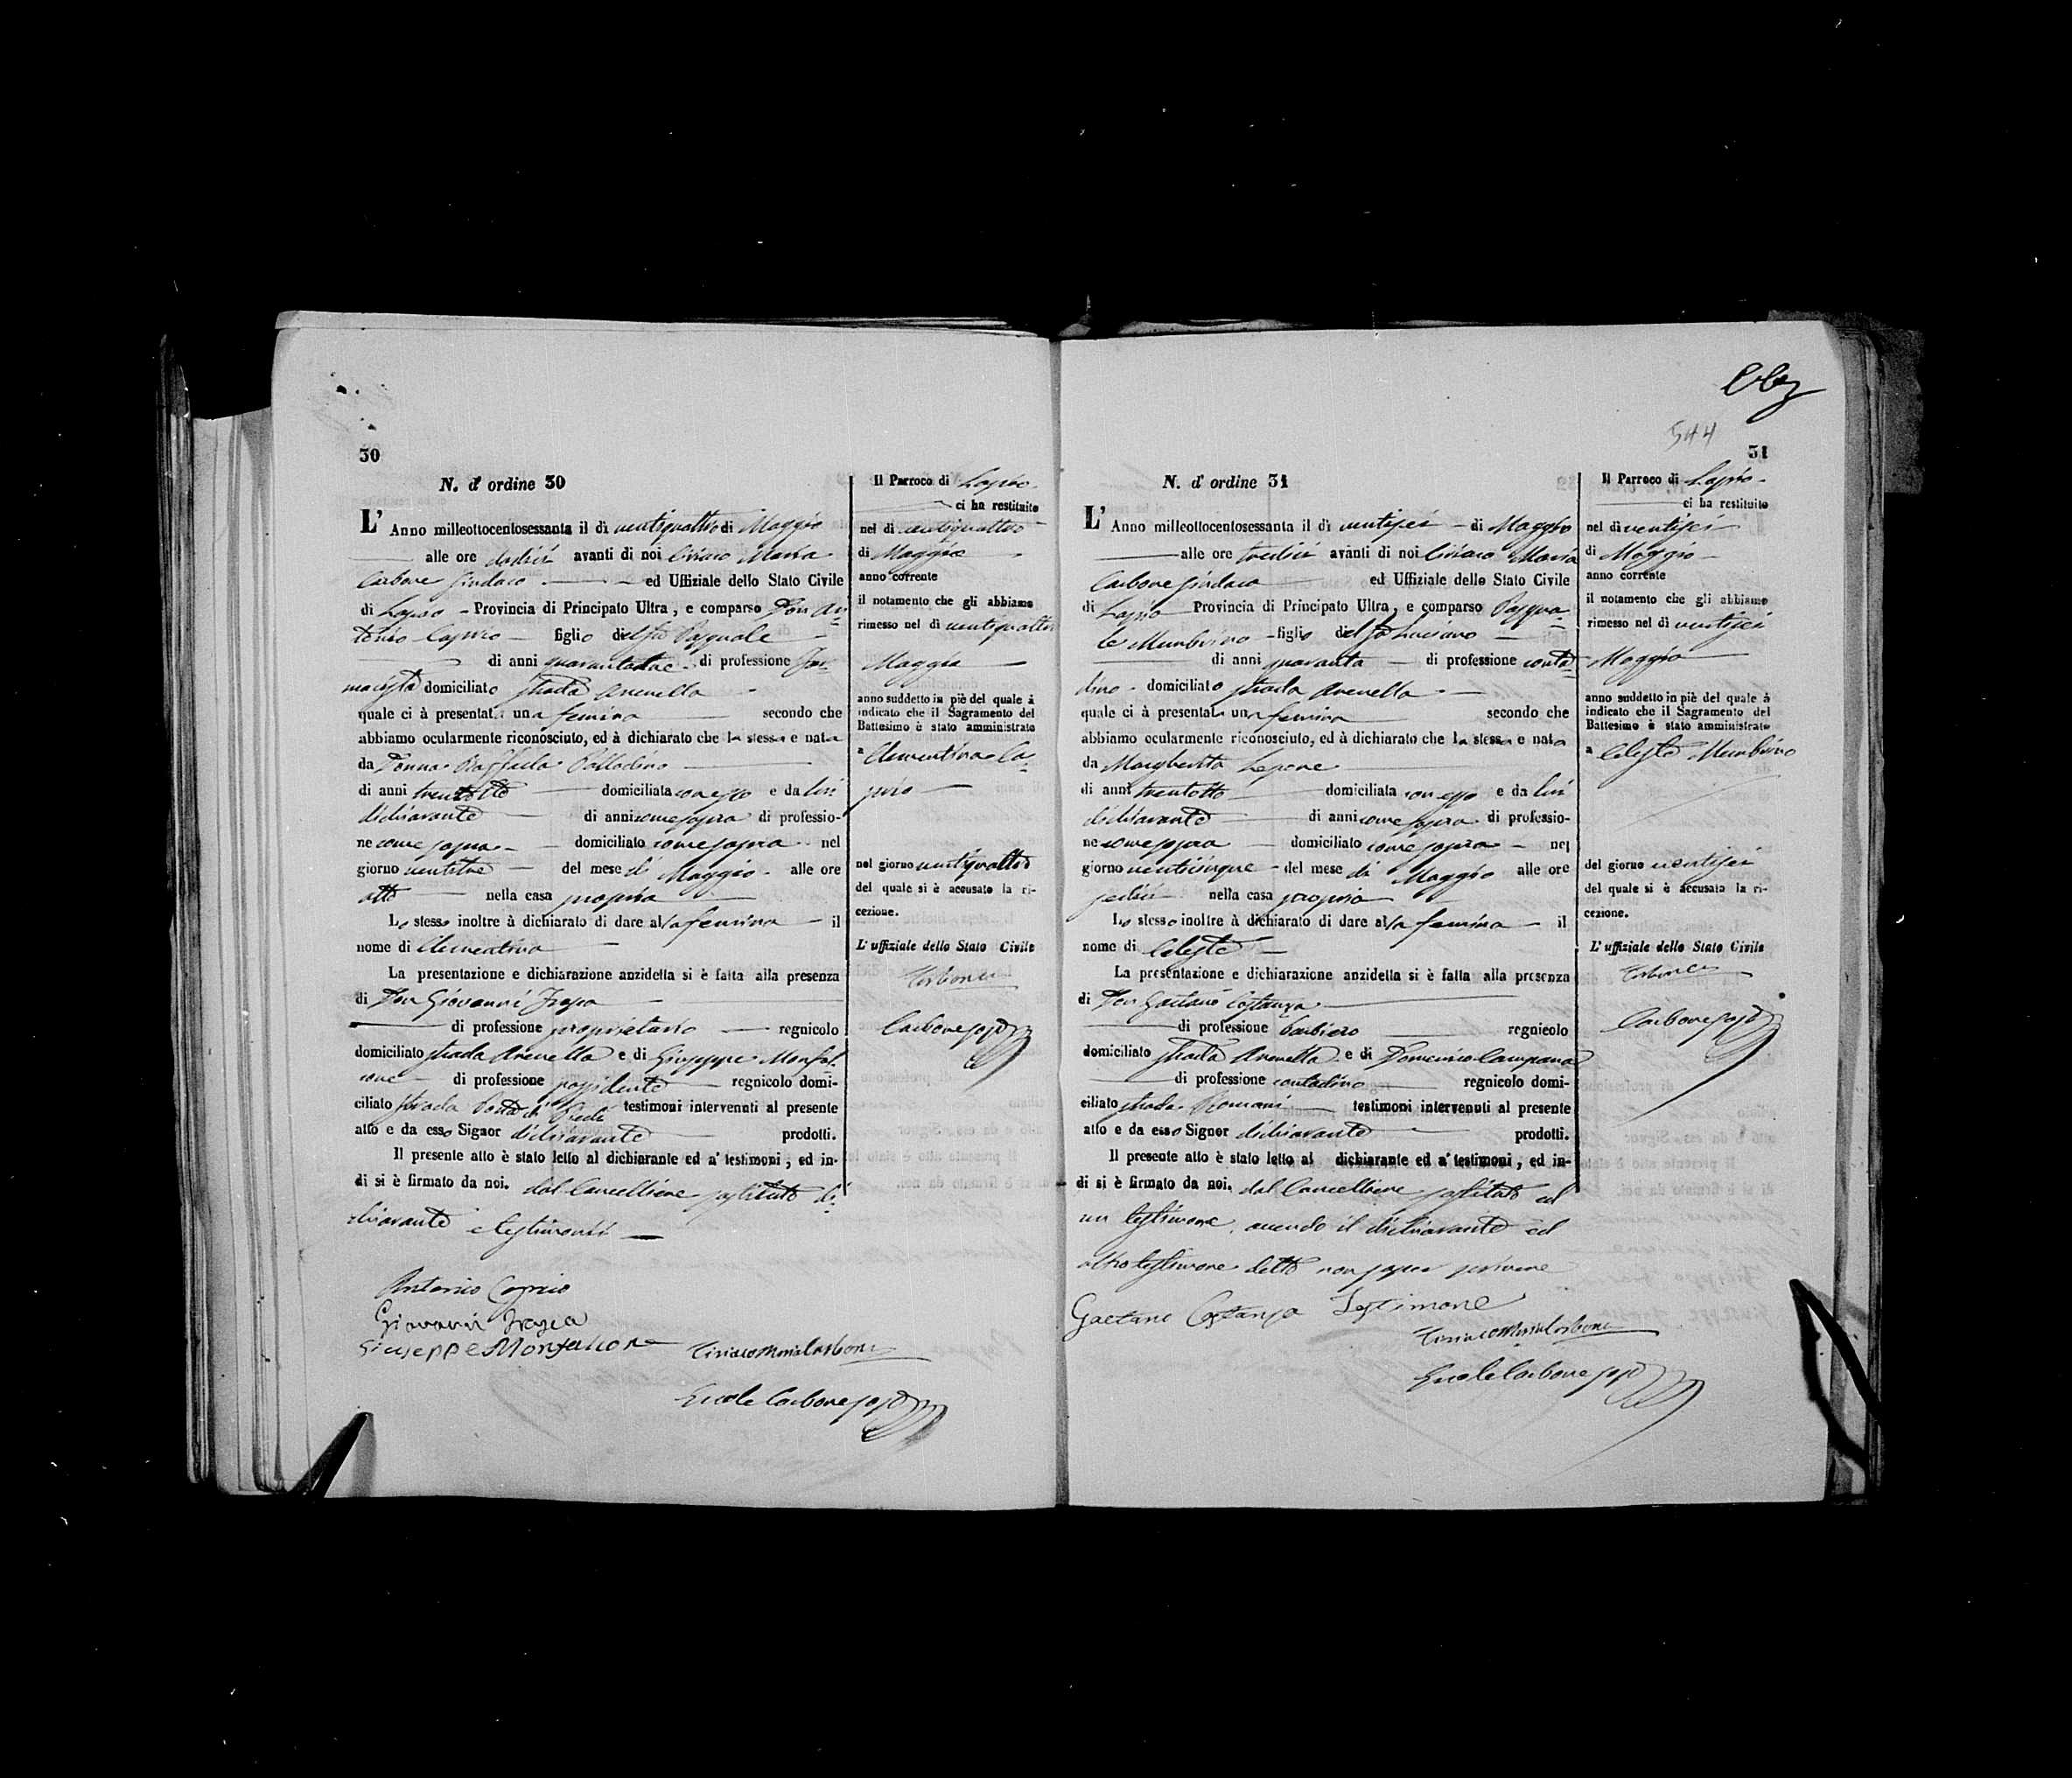 30
N. d' ordine 30
L' Anno milleottocentosessanta il dì ventiquattro di Maggio
alle ore dodici avanti di noi Ciriaco Maria
Carbone Sindaco ed Uffiziale dello Stato Civile
di Lapio Provincia di Principato Ultra, e comparso Don An-
tonio Caprio figlio del fu Pasquale
di anni quarantadue di professione Far-
macista domiciliato strada Arenella
quale ci à presentat. una femina secondo che
abbiamo ocularmente riconosciuto, ed à dichiarato che la stessa e nata
da Donna Raffaela Palladino
di anni trentotto domiciliata con esso e da lui
dichiarante di anni come sopra di professio-
ne come sopra domiciliato come sopra nel
giorno ventitre del mese di Maggio alle ore
otto nella casa propria
Lo stesso inoltre à dichiarato di dare alla femina il
nome di Clementina
La presentazione e dichiarazione anzidetta si è fatta alla presenza
di Don Giovanni
di professione proprietario regnicolo
domiciliato strada Arenella e di Giuseppe Monfal-
cone di professione possidente regnicolo domi-
ciliato strada testimoni intervenuti al presente
atto e da esso Signor dichiarante prodotti.
Il presente atto è stato letto al dichiarante ed a' testimoni, ed in-
di si è firmato da noi, dal Cancelliere sostituto di-
chiarante e testimonii
Antonio Caprio
Giovanni
Giuseppe Monfalcone Ciriaco Maria Carbone
Ercole Carbone sosto
Il Parroco di Lapio
ci ha restituito
nel dì ventiquattro
di Maggio
anno corrente
il notamento che gli abbiamo
rimesso nel dì ventiquattro
Maggio
anno suddetto in piè del quale à
indicato che il Sagramento del
Battesimo è stato amministrato
a Clementina Ca-
prio
nel giorno ventiquattro
del quale si è accusato la ri-
cezione.
L' uffiziale dello Stato Civile
Carbone
Carbone sosto
544
31
N. d' ordine 31
L' Anno milleottocentosessanta il dì ventisei di Maggio
alle ore tredici avanti di noi Ciriaco Maria
Carbone Sindaco ed Uffiziale dello Stato Civile
di Lapio Provincia di Principato Ultra, e comparso Pasqua-
le Membrino figlio del fu Luciano
di anni quaranta di professione conta-
dino domiciliato strada Arenella
quale ci à presentat. una femina secondo che
abbiamo ocularmente riconosciuto, ed à dichiarato che la stessa e nata
da Margharita Lepore
di anni trentotto domiciliata con esso e da lui
dichiarante di anni come sopra di professio-
ne come sopra domiciliato come sopra nel
giorno venticinque del mese di Maggio alle ore
sedici nella casa propria
Lo stesso inoltre à dichiarato di dare alla femina il
nome di Celeste
La presentazione e dichiarazione anzidetta si è fatta alla presenza
di Don Gaetano Costanza
di professione barbiero regnicolo
domiciliato strada Arenella e di Domenico Campana
di professione contadino regnicolo domi-
ciliato strada Romani testimoni intervenuti al presente
atto e da esso Signor dichiarante prodotti.
Il presente atto è stato letto al dichiarante ed a' testimoni, ed in-
di si è firmato da noi, dal Cancelliere sostituto ed
un testimone, avendo il dichiarante ed
altro testimone detto non saper scrivere
Gaetano Costanza Testimone
Ciriaco Maria Carbone
Ercole Carbone sosto
Il Parroco di Lapio
ci ha restituito
nel dì ventisei
di Maggio
anno corrente
il notamento che gli abbiamo
rimesso nel dì ventisei
Maggio
anno suddetto in piè del quale à
indicato che il Sagramento del
Battesimo è stato amministrato
a Celeste Membrino
del giorno ventisei
del quale si è accusata la ri-
cezione.
L' uffiziale dello Stato Civile
Carbone
Carbone sosto